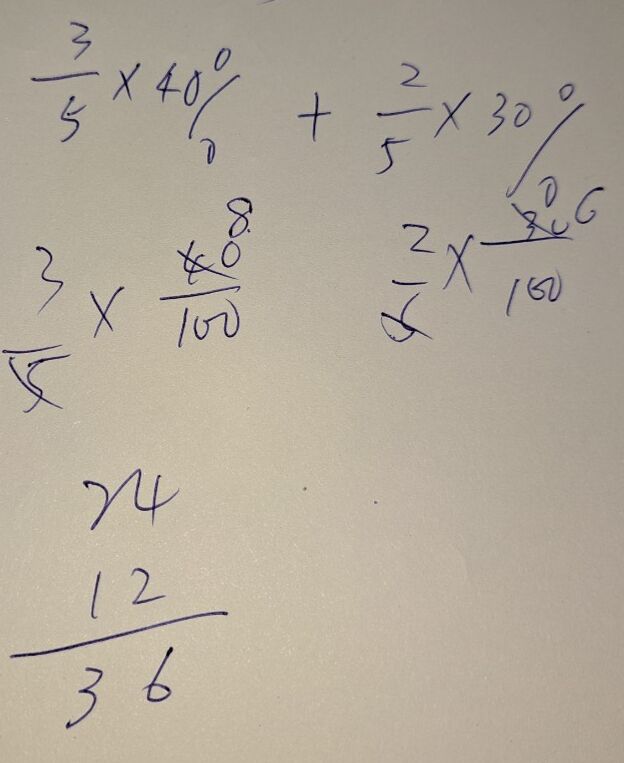 3/5 × 40% + 2/5 × 30%
3/5 × 40/100 8 2/5 × 30/100 6
24
12
36